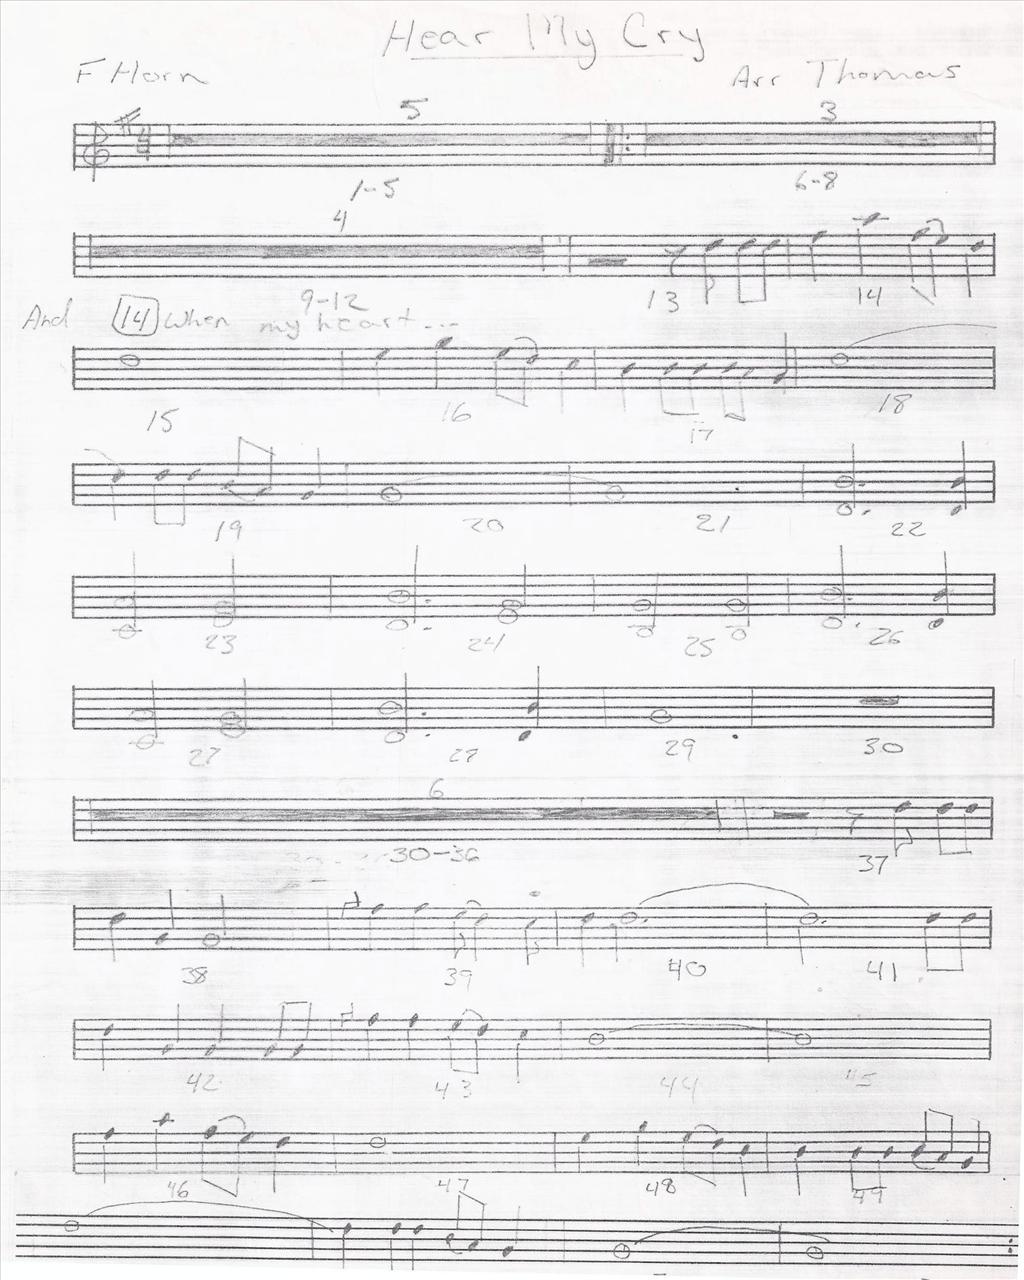 Hear My Cry
F Horn Arr Thomas
5 3
1-5 6-8
4
9-12 13 14
And 14 When my heart...
15 16 17 18
19 20 21 22
23 24 25 26
27 28 29 30
6
30-36 37
38 39 40 41
42 43 44 45
46 47 48 49